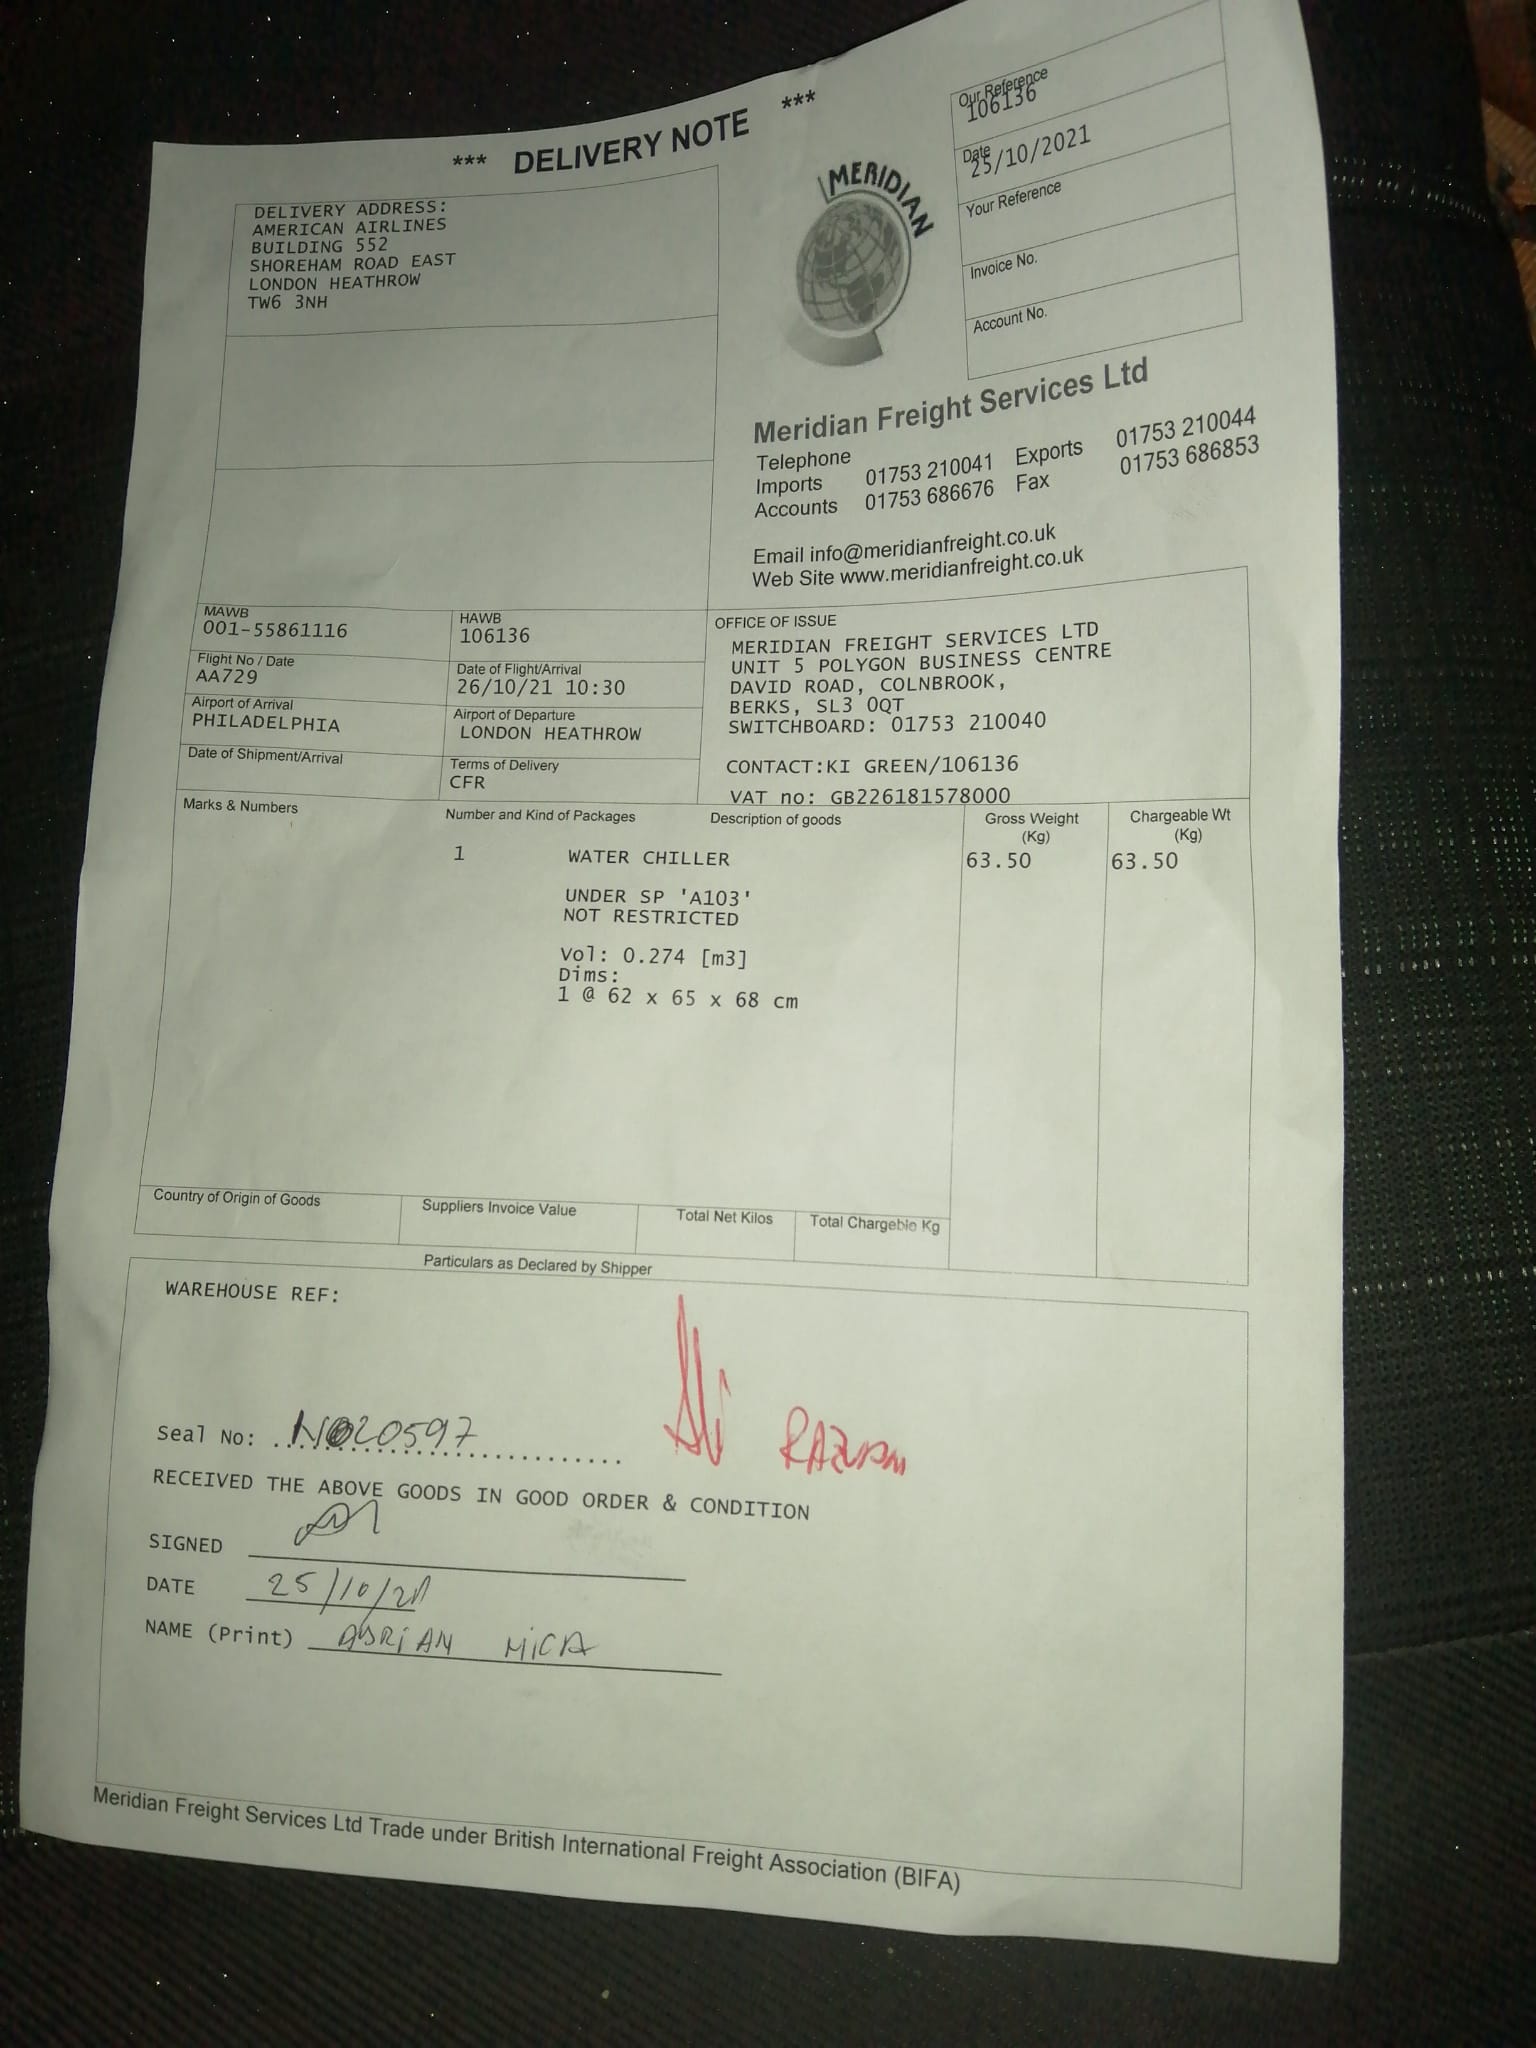 *** DELIVERY NOTE ***
DELIVERY ADDRESS:
AMERICAN AIRLINES
BUILDING 552
SHOREHAM ROAD EAST
LONDON HEATHROW
TW6 3NH
MERIDIAN
Our Reference
106136
Date
25/10/2021
Your Reference
Invoice No.
Account No.
Meridian Freight Services Ltd
Telephone
Imports 01753 210041 Exports 01753 210044
Accounts 01753 686676 Fax 01753 686853
Email info@meridianfreight.co.uk
Web Site www.meridianfreight.co.uk
MAWB
001-55861116
HAWB
106136
Flight No / Date
AA729
Date of Flight/Arrival
26/10/21 10:30
Airport of Arrival
PHILADELPHIA
Airport of Departure
LONDON HEATHROW
Date of Shipment/Arrival
Terms of Delivery
CFR
OFFICE OF ISSUE
MERIDIAN FREIGHT SERVICES LTD
UNIT 5 POLYGON BUSINESS CENTRE
DAVID ROAD, COLNBROOK,
BERKS, SL3 0QT
SWITCHBOARD: 01753 210040
CONTACT:KI GREEN/106136
VAT no: GB226181578000
Marks & Numbers
Number and Kind of Packages
Description of goods
Gross Weight
(Kg)
Chargeable Wt
(Kg)
1 WATER CHILLER 63.50 63.50
UNDER SP 'A103'
NOT RESTRICTED
Vol: 0.274 [m3]
Dims:
1 @ 62 x 65 x 68 cm
Country of Origin of Goods
Suppliers Invoice Value
Total Net Kilos
Total Chargeble Kg
Particulars as Declared by Shipper
WAREHOUSE REF:
Seal No: N020597
RECEIVED THE ABOVE GOODS IN GOOD ORDER & CONDITION
SIGNED
DATE 25/10/21
NAME (Print) ADRIAN MICA
Meridian Freight Services Ltd Trade under British International Freight Association (BIFA)